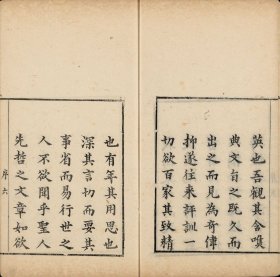 英也吾觀其含嘰
典文自之既久而
出之而見為奇傳
抑遂往來評訓一
切欲百家其致精
也有年其用思也
深其言切而要其
事省而易行世之
人不欲聞乎聖人
先哲之文章如欲
序六